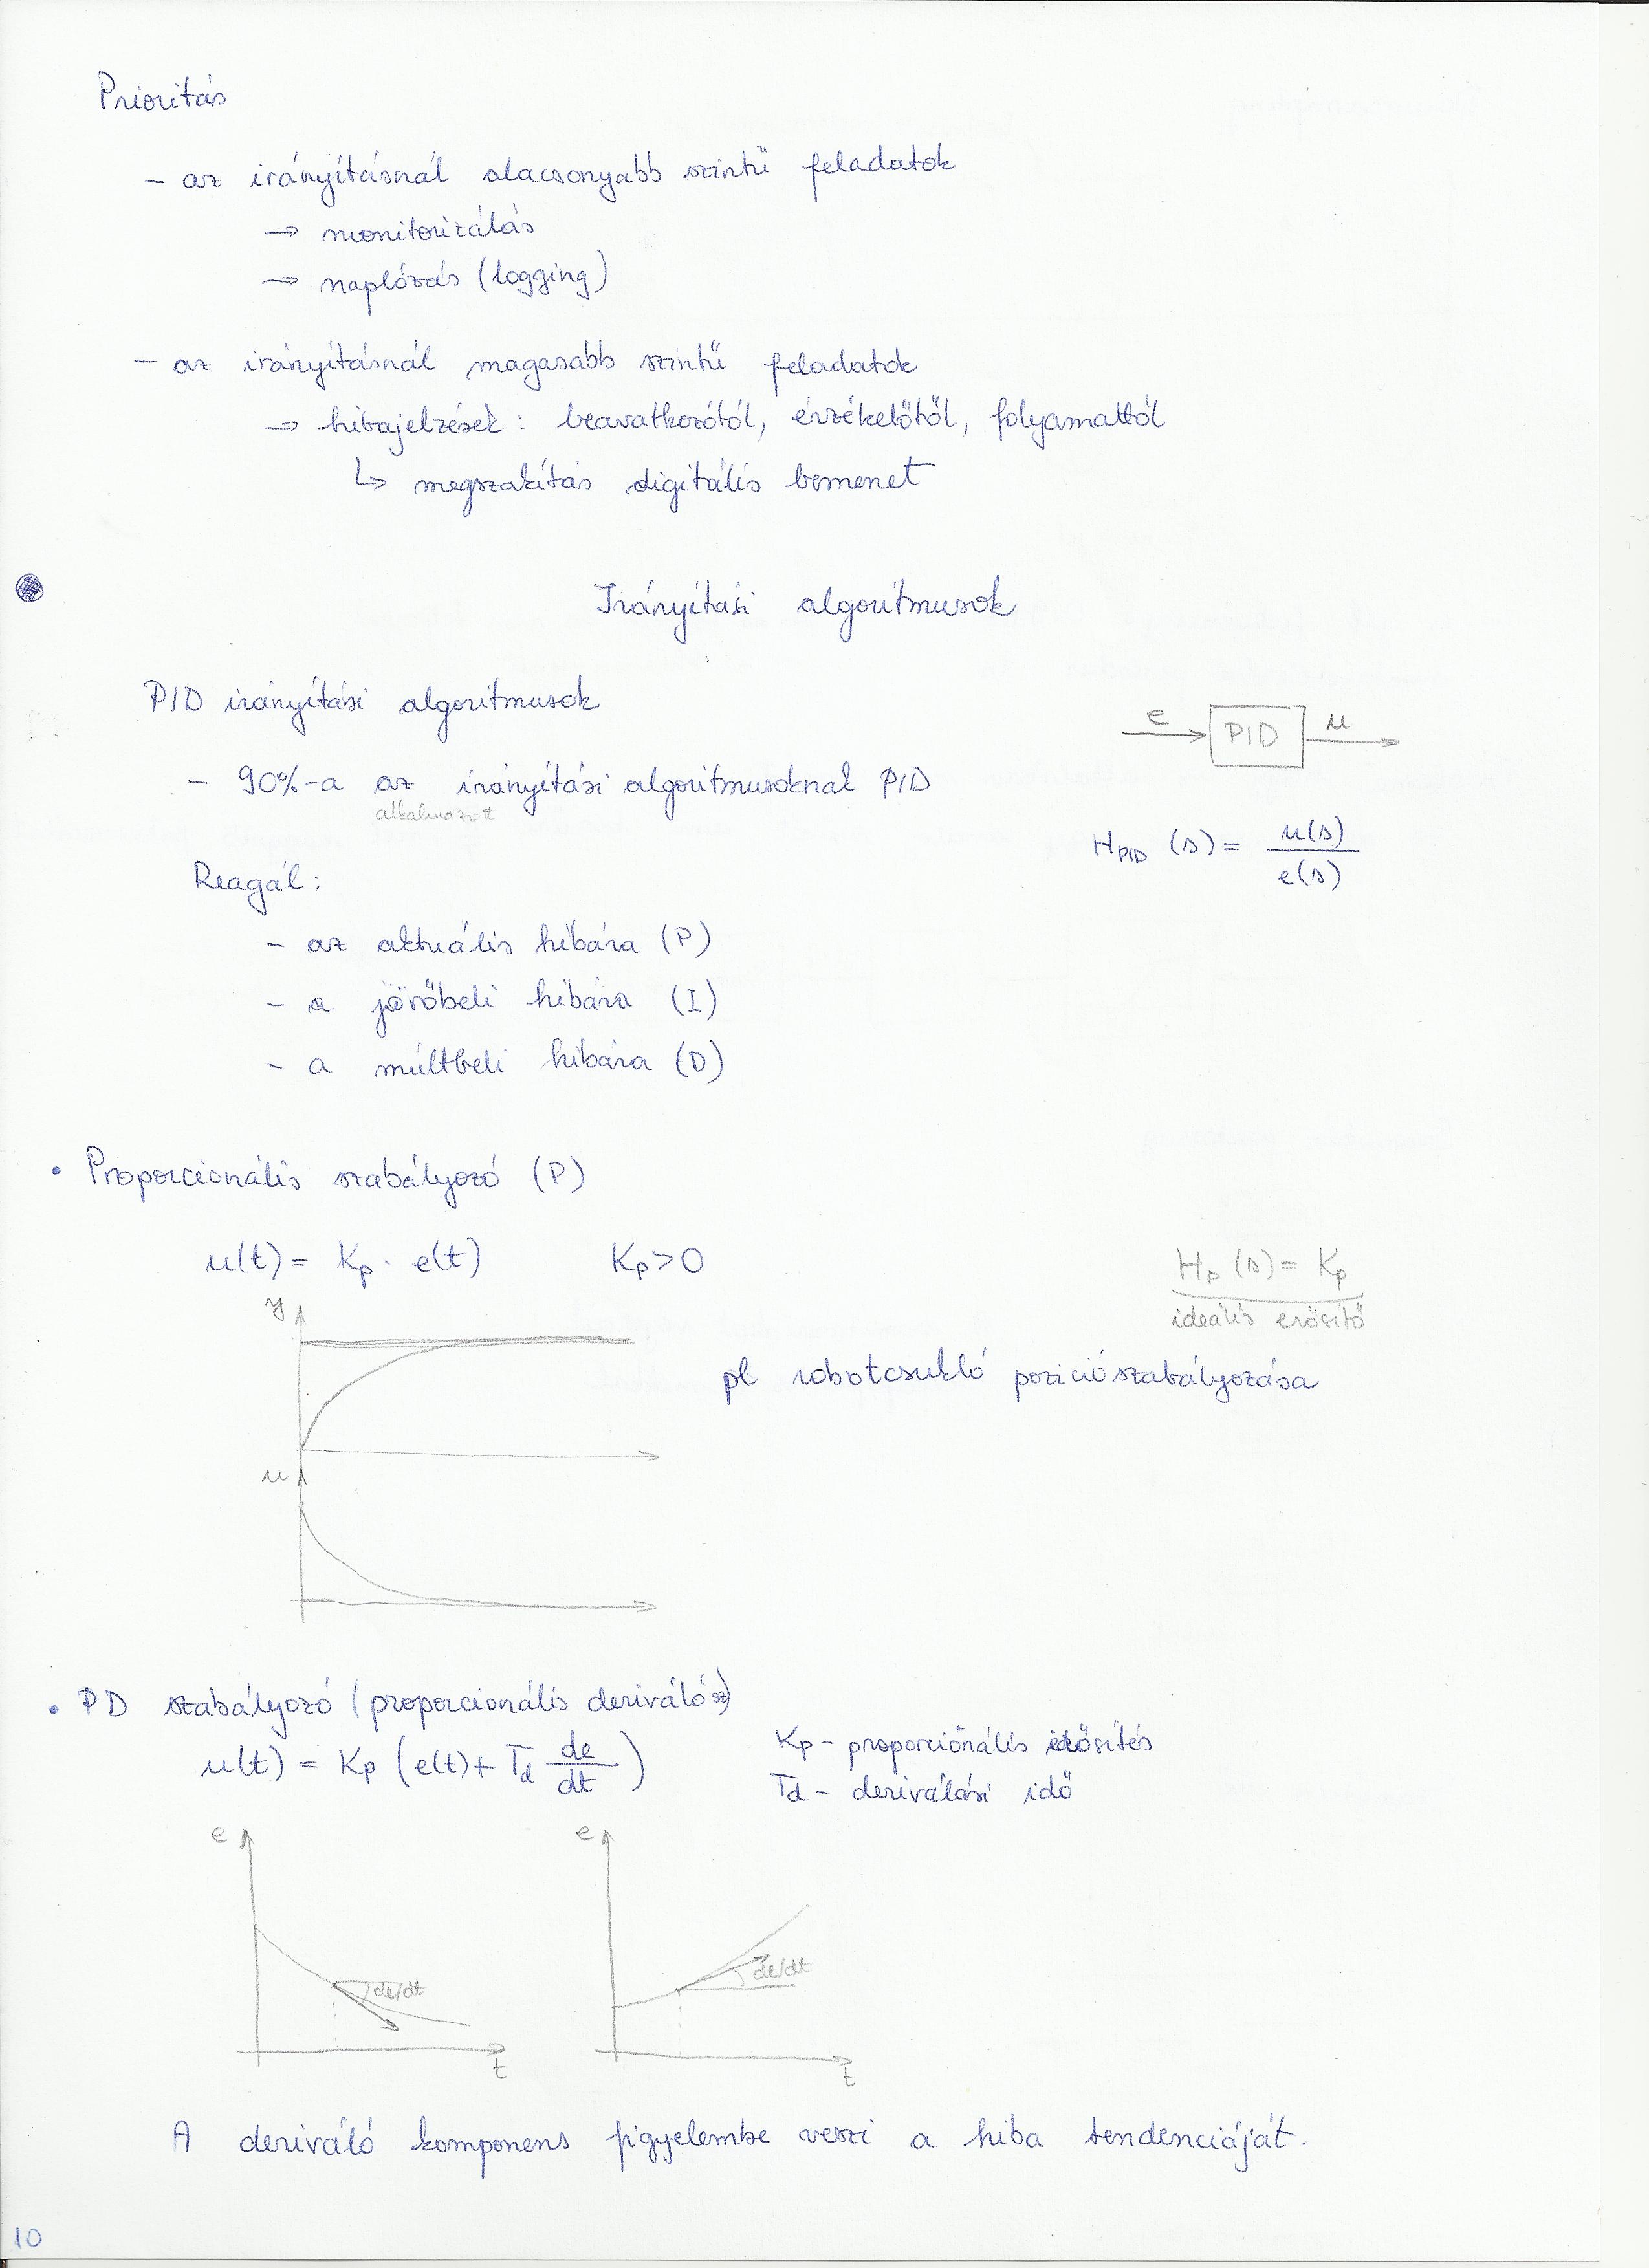 Prioritás
- az irányításnál alacsonyabb szintű feladatok
→ monitorizálás
→ naplózás (logging)
- az irányításnál magasabb szintű feladatok
→ hibajelzések: beavatkozótól, érzékelőtől, folyamattól
↳ megszakítás digitális bemenet
Irányítási algoritmusok
PID irányítási algoritmusok
e PID u
- 90%-a az irányítási algoritmusoknak PID
alkalmazott
H_PID (s) = u(s) / e(s)
Reagál:
- az aktuális hibára (P)
- a jövőbeli hibára (I)
- a múltbeli hibára (D)
• Proporcionális szabályozó (P)
u(t) = Kp · e(t) Kp > 0
Hp (s) = Kp
ideális erősítő
y
pl robotcsukló pozíciószabályozása
u
• PD szabályozó (proporcionális deriváló)
u(t) = Kp (e(t) + Td de/dt)
Kp - proporcionális erősítés
Td - deriválási idő
e e
de/dt de/dt
t t
A deriváló komponens figyelembe veszi a hiba tendenciáját.
10